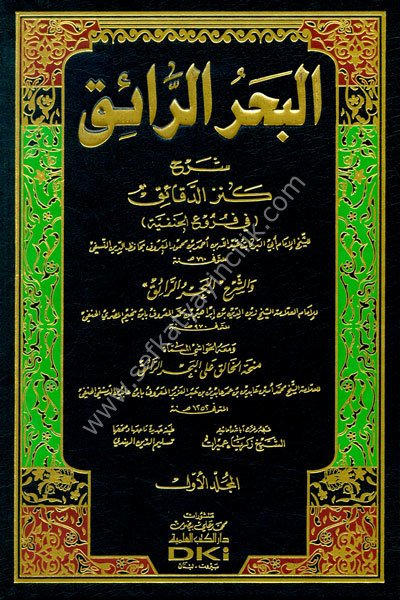 البَحرُ الرَّائِق
شرح
كنز الدقائق
(في فروع الحنفية)
للشيخ الإمام أبي البركات عبد الله بن أحمد بن محمود المعروف بحافظ الدين النسفي
المتوفى ٧١٠ سنة
والشرح "البحر الرائق"
للإمام العلامة الشيخ زين الدين بن إبراهيم بن محمد المعروف بابن نجيم المصري الحنفي
المتوفى ٩٧٠ سنة
ومعه الحواشي المسماة
منحة الخالق على البحر الرائق
للعلامة الشيخ محمد أمين عابدين بن عمر عابدين بن عبد العزيز المعروف بابن عابدين الدمشقي الحنفي
المتوفى ١٢٥٢ سنة
الشيخ زكريا عميرات
المجلد الأول
منشورات
محمد علي بيضون
دار الكتب العلمية
DKi
بيروت - لبنان
www.safkanyayincilik.com